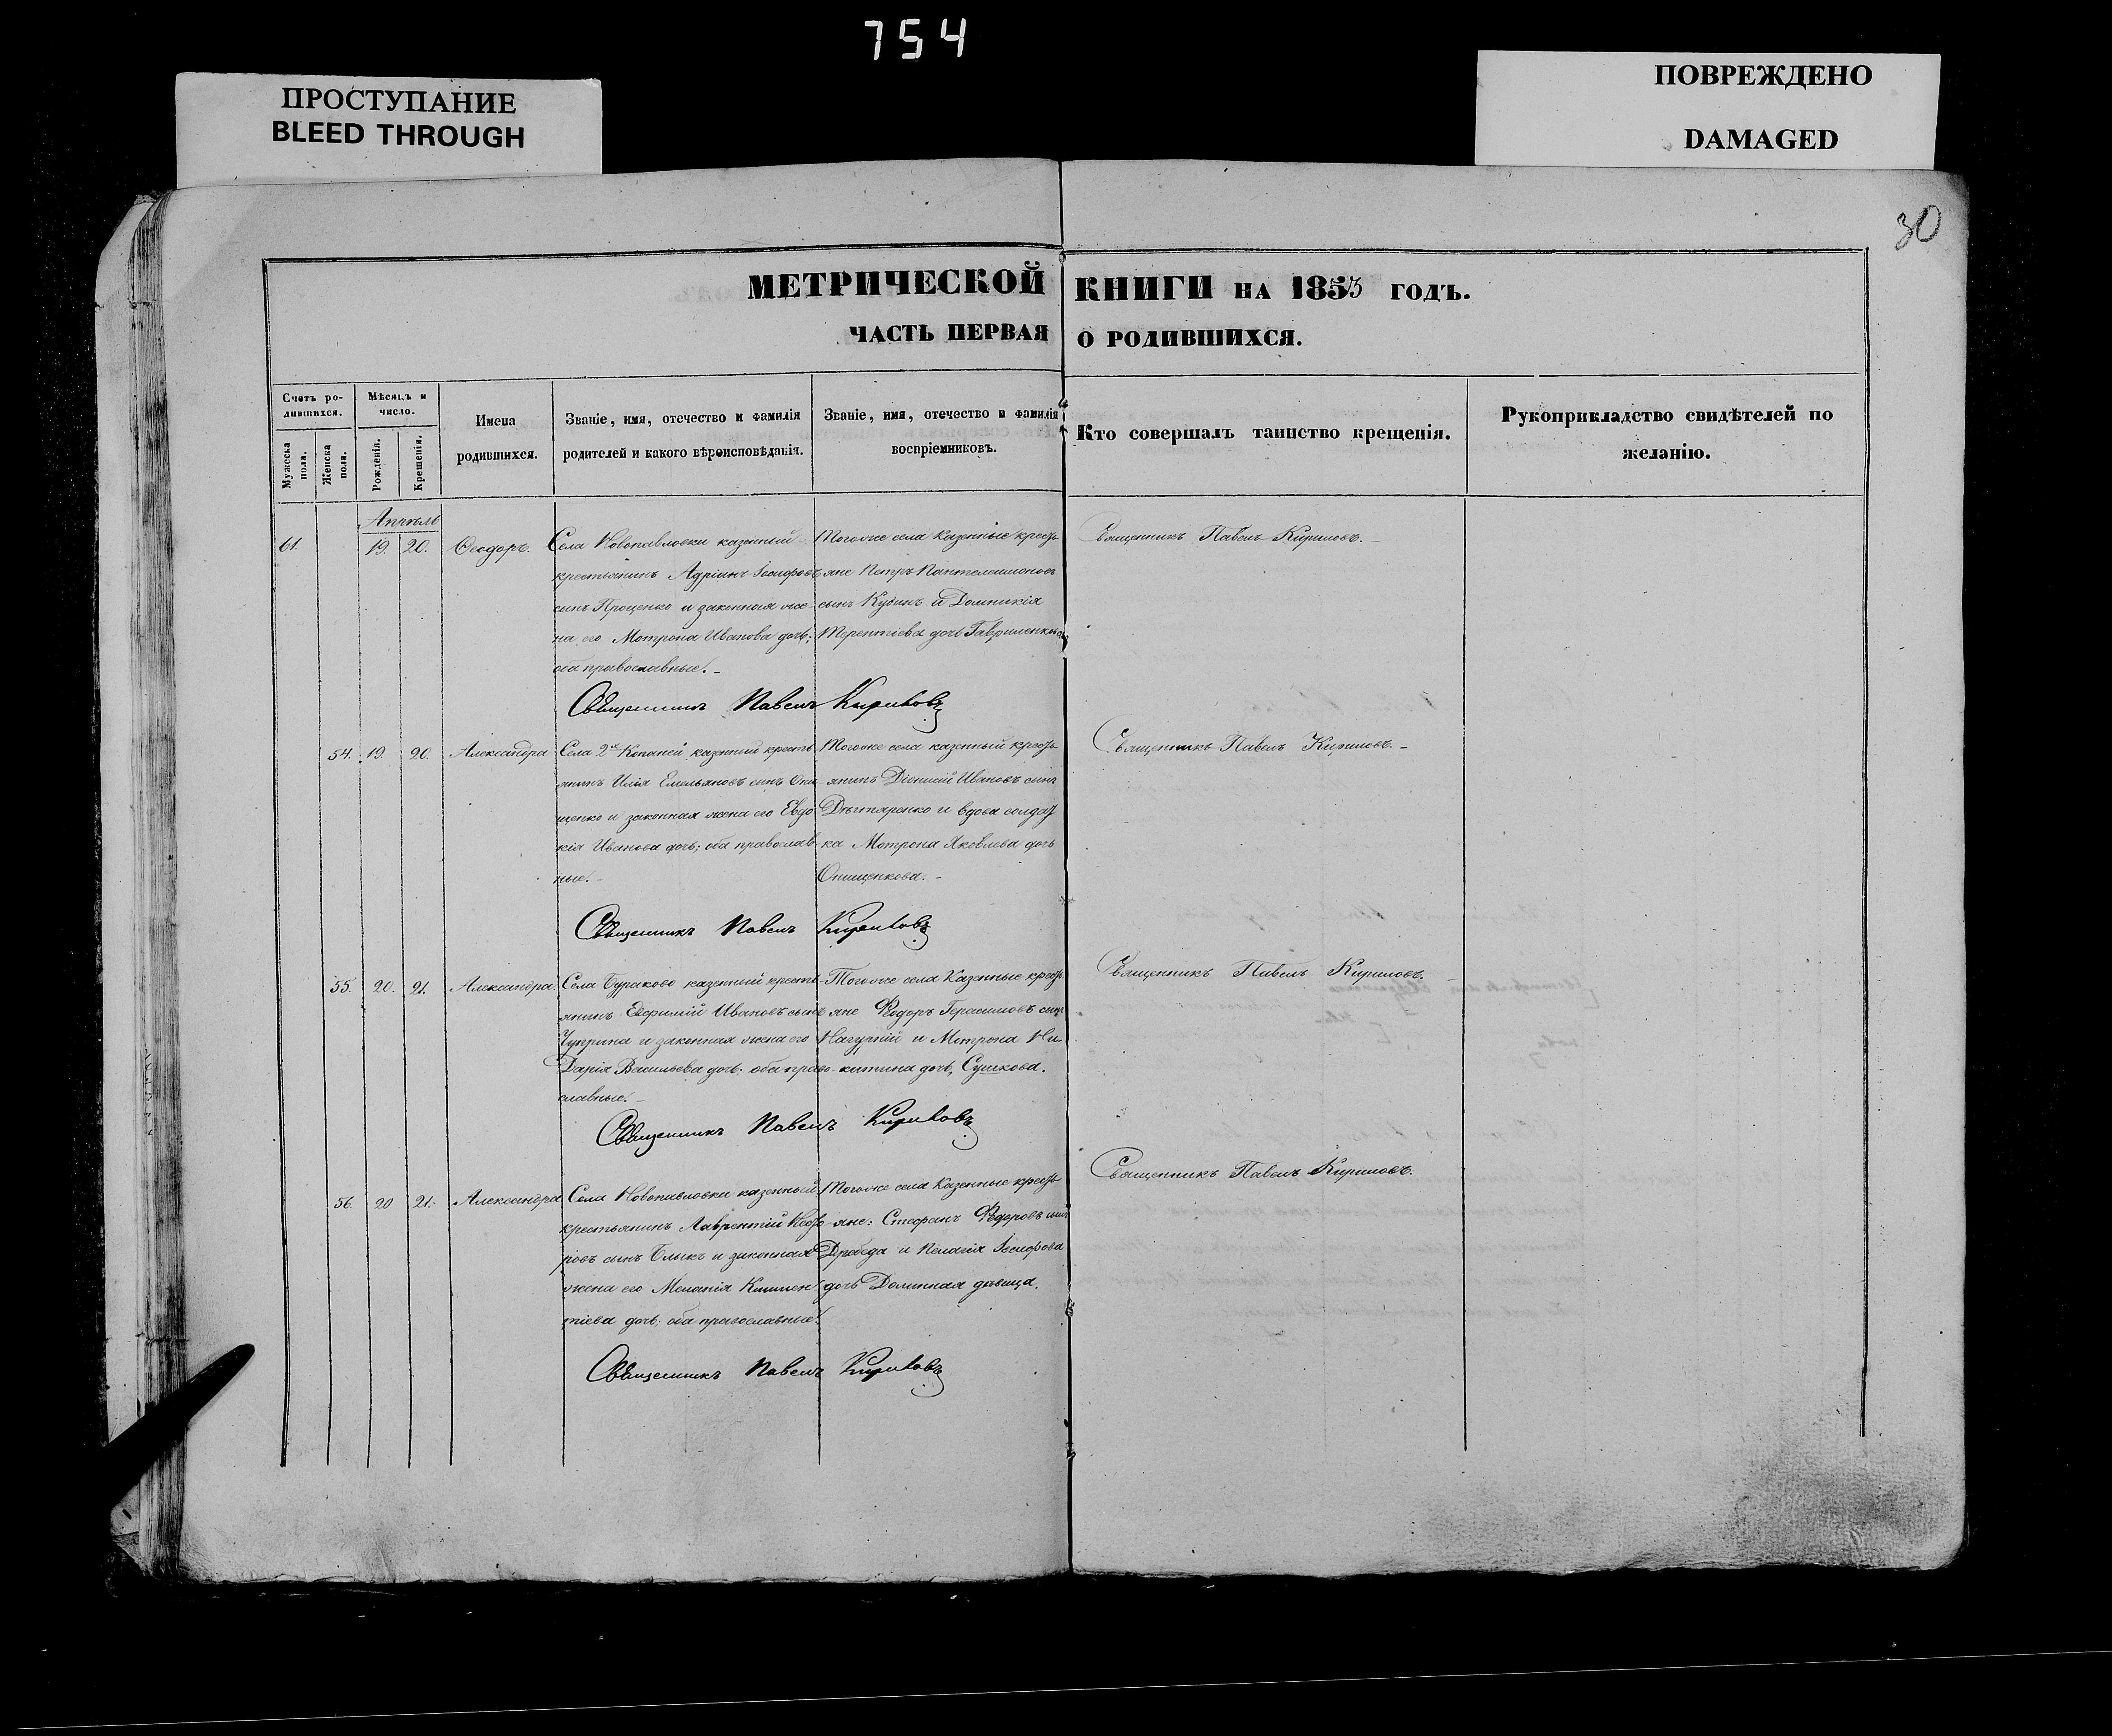 754
ПРОСТУПАНИЕ
BLEED THROUGH
ПОВРЕЖДЕНО
DAMAGED
30
МЕТРИЧЕСКОЙ КНИГИ НА 1853 ГОДЪ.
ЧАСТЬ ПЕРВАЯ О РОДИВШИХСЯ.
Счетъ ро-
дившихся.
Мужеска
пола.
Женска
пола.
Мѣсяцъ и
число.
Рожденія.
Крещенія.
Имена
родившихся.
Званіе, имя, отечество и фамилія
родителей и какого вѣроисповѣданія.
Званіе, имя, отечество и фамилія
воспріемниковъ.
Кто совершалъ таинство крещенія.
Рукоприкладство свидѣтелей по
желанію.
Апрѣль
61. 19. 20. Ѳеодоръ.
Села Новопавловки казенный
крестьянинъ Адріанъ Іосифовъ
сынъ Проценко и законная же-
на его Мотрона Иванова дочь;
оба православные.
Тогоже села казенные кресть-
яне Петръ Пантелеимоновъ
сынъ Кубинъ и Домникія
Терентіева дочь Гавриленкова
Священникъ Павелъ Кириловъ.
Священникъ Павелъ Кириловъ
54. 19. 20. Александра
Села 2й Копаней казенный кресть-
янинъ Илія Емельяновъ сынъ Они-
щенко и законная жена его Евдо-
кія Иванова дочь; оба православ-
ные.
Тогоже села казенный кресть-
янинъ Діонисій Ивановъ сынъ
Дѣгтяренко и вдова солдат-
ка Мотрона Яковлева дочь
Онищенкова.
Священникъ Павелъ Кириловъ.
Священникъ Павелъ Кириловъ
55. 20. 21. Александра.
Села Бураково казенный кресть-
янинъ Евфимій Ивановъ сынъ
Чуприна и законная жена его
Дарія Васильева дочь; оба право-
славные.
Тогоже села Казенные кресть-
яне Ѳеодоръ Герасимовъ сынъ
Нагурній и Мотрона Ни-
китина дочь, Сушкова.
Священникъ Павелъ Кириловъ.
Священникъ Павелъ Кириловъ
56. 20 21. Александра
Села Новопавловки казенный
крестьянинъ Лаврентій
ровъ сынъ Блыкъ и законная
жена его Меланія Климен-
тіева дочь; оба православные.
Тогоже села Казенные кресть-
яне: Стефанъ Ѳедоровъ сынъ
Дробеда и Пелагія Іосифова
дочь Долинная дѣвица.
Священникъ Павелъ Кириловъ.
Священникъ Павелъ Кириловъ